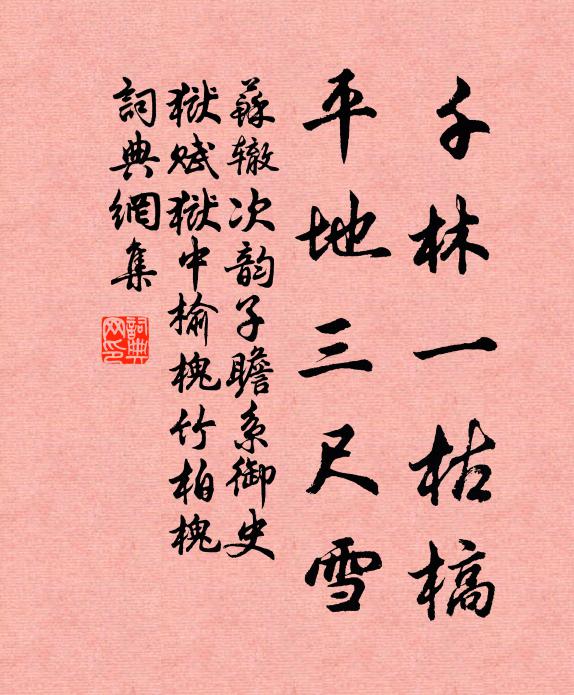 千林一枯槁
平地三尺雪
蘇辙次韵子瞻系御史
獄賦獄中榆槐竹柏槐
詞典網集
詞典网印